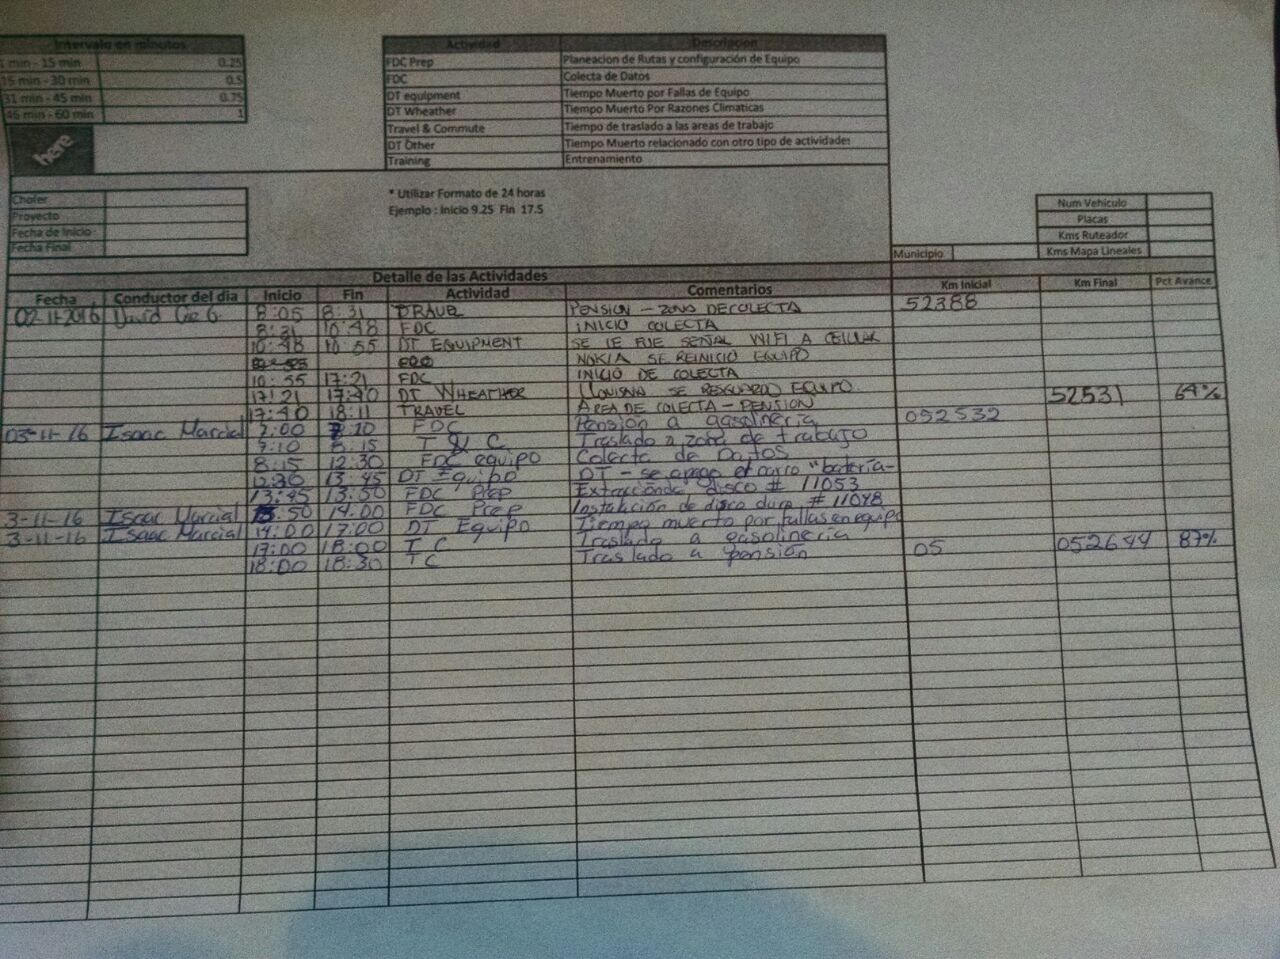 Intervalo en minutos
1 min - 15 min 0.25
15 min - 30 min 0.5
31 min - 45 min 0.75
46 min - 60 min 1
here
Actividad Descripcion
FDC Prep Planeacion de Rutas y configuración de Equipo
FDC Colecta de Datos
DT equipment Tiempo Muerto por Fallas de Equipo
DT Wheather Tiempo Muerto Por Razones Climaticas
Travel & Commute Tiempo de traslado a las areas de trabajo
DT Other Tiempo Muerto relacionado con otro tipo de actividades
Training Entrenamiento
Chofer
Proyecto
Fecha de Inicio
Fecha Final
* Utilizar Formato de 24 horas
Ejemplo : Inicio 9.25 Fin 17.5
Num Vehículo
Placas
Kms Ruteador
Municipio Kms Mapa Lineales
Detalle de las Actividades
Fecha Conductor del dia Inicio Fin Actividad Comentarios Km Inicial Km Final Pct Avance
02-11-2016 David 8:05 8:31 TRAVEL PENSION - ZONA DE COLECTA 52388
8:31 10:48 FDC INICIO COLECTA
10:48 10:55 DT EQUIPMENT SE LE FUE SEÑAL WIFI A CELULAR
NOKIA SE REINICIO EQUIPO
10:55 17:21 FDC INICIO DE COLECTA
17:21 17:40 DT WHEATHER LLOVISNA SE RESGUARDO EQUIPO 52531 64%
17:40 18:11 TRAVEL AREA DE COLECTA - PENSION
03-11-16 Isaac Marcial 7:00 7:10 FDC Pensión a gasolinería 052532
7:10 8:15 T & C Traslado a zona de trabajo
8:15 12:30 FDC equipo Colecta de Datos
12:30 13:45 DT Equipo DT - se apago el carro "batería-
13:45 13:50 FDC Prep Extracción de disco # 11053
3-11-16 Isaac Marcial 13:50 14:00 FDC Prep Instalación de disco duro # 11048
3-11-16 Isaac Marcial 14:00 17:00 DT Equipo Tiempo muerto por fallas en equipo
17:00 18:00 T C Traslado a gasolinería 05 052644 87%
18:00 18:30 TC Traslado a pensión